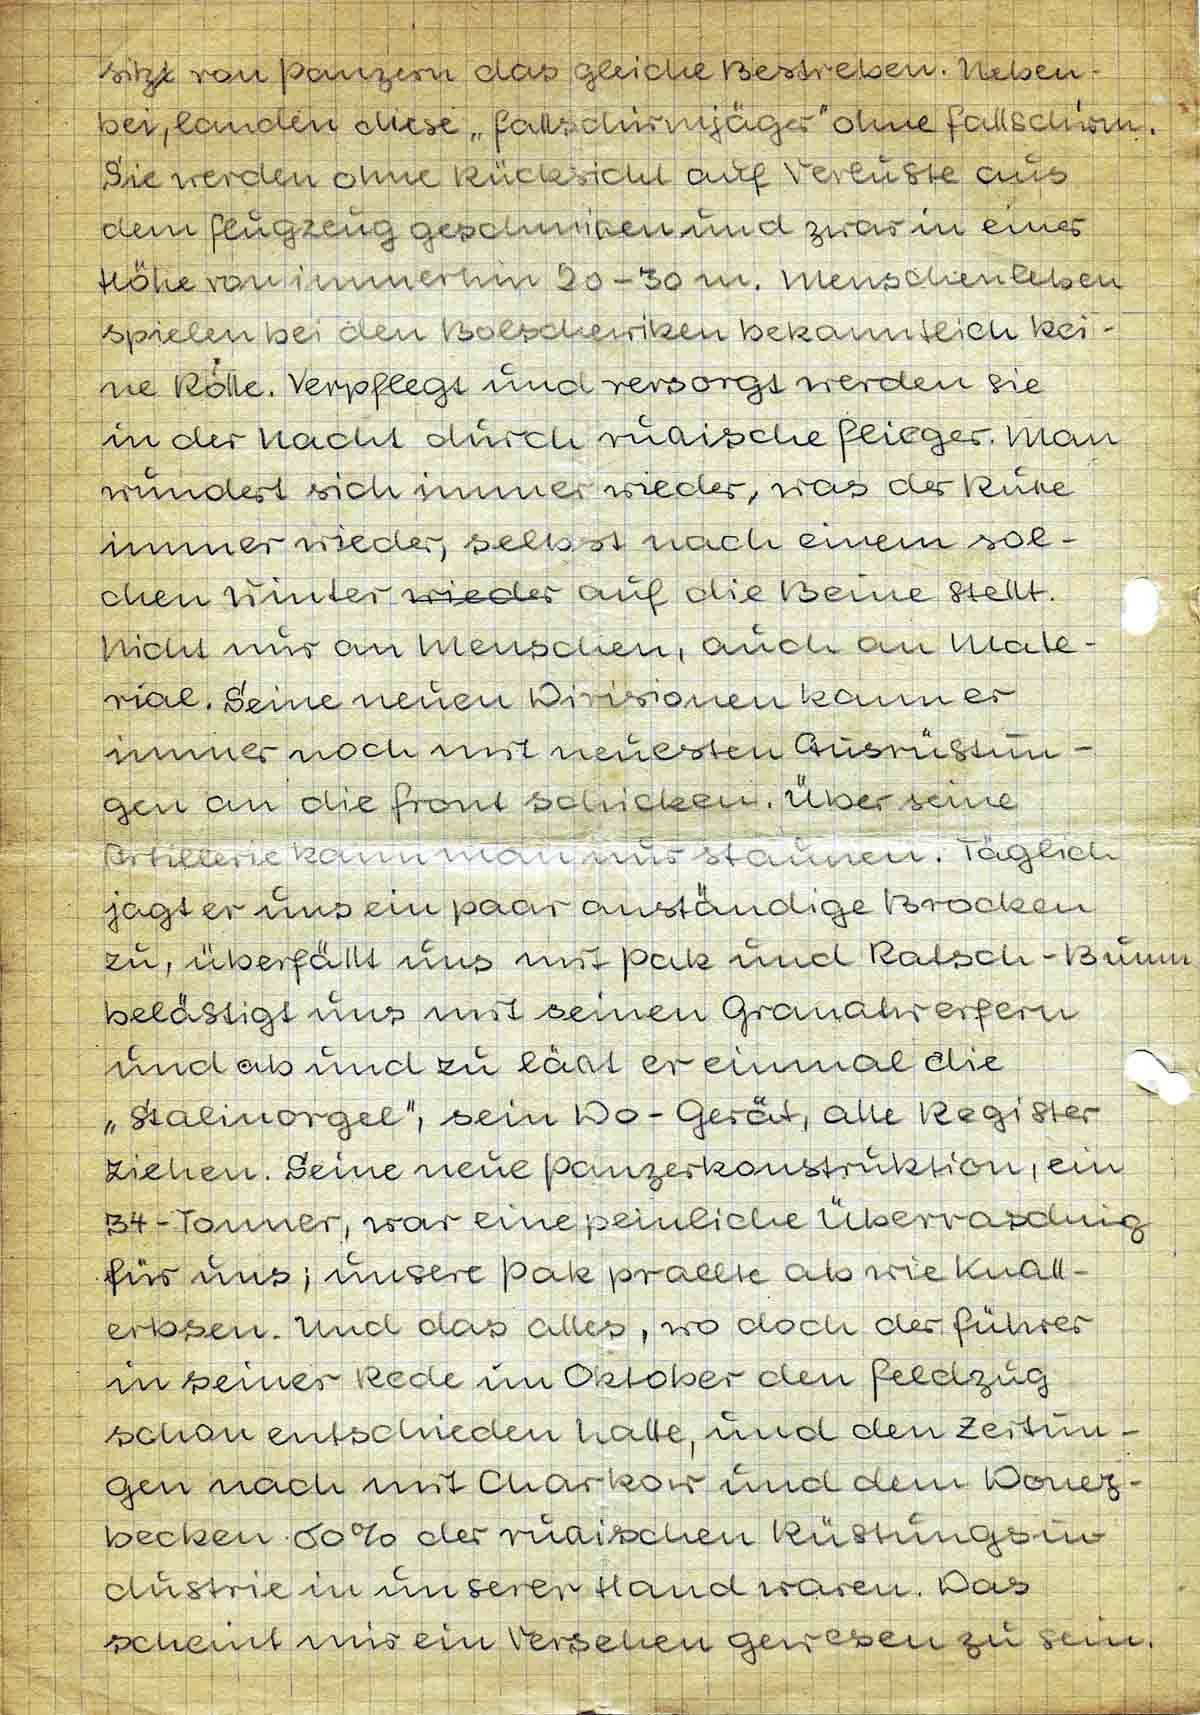 sitze von Panzern das gleiche Bestreben. Neben-
bei, landen diese „Fallschirmjäger" ohne Fallschirm.
Sie werden ohne Rücksicht auf Verluste aus
dem Flugzeug geschmissen und zwar in einer
Höhe von immerhin 20-30 m. Menschenleben
spielen bei den Bolschewiken bekanntlich kei-
ne Rolle. Verpflegt und versorgt werden sie
in der Nacht durch rußische Flieger. Man
wundert sich immer wieder, was der Ruße
immer wieder, selbst nach einem sol-
chen Winter wieder auf die Beine stellt.
Nicht nur an Menschen, auch an Mate-
rial. Seine neuen Divisionen kann er
immer noch mit neuesten Ausrüstun-
gen an die Front schicken. Über seine
Artillerie kann man nur staunen. Täglich
jagt er uns ein paar anständige Brocken
zu, überfällt uns mit Pak und Ratsch-Bumm
belästigt uns mit seinen Granatwerfern
und ab und zu läßt er einmal die
„Stalinorgel", sein Do-Gerät, alle Register
ziehen. Seine neue Panzerkonstruktion, ein
34-Tonner, war eine peinliche Überraschung
für uns; unsere Pak prallte ab wie Knall-
erbsen. Und das alles, wo doch der Führer
in seiner Rede im Oktober den Feldzug
schon entschieden hatte, und den Zeitun-
gen nach mit Charkow und dem Donez-
becken 60% der rußischen Rüstungsin-
dustrie in unserer Hand waren. Das
scheint mir ein Versehen gewesen zu sein.